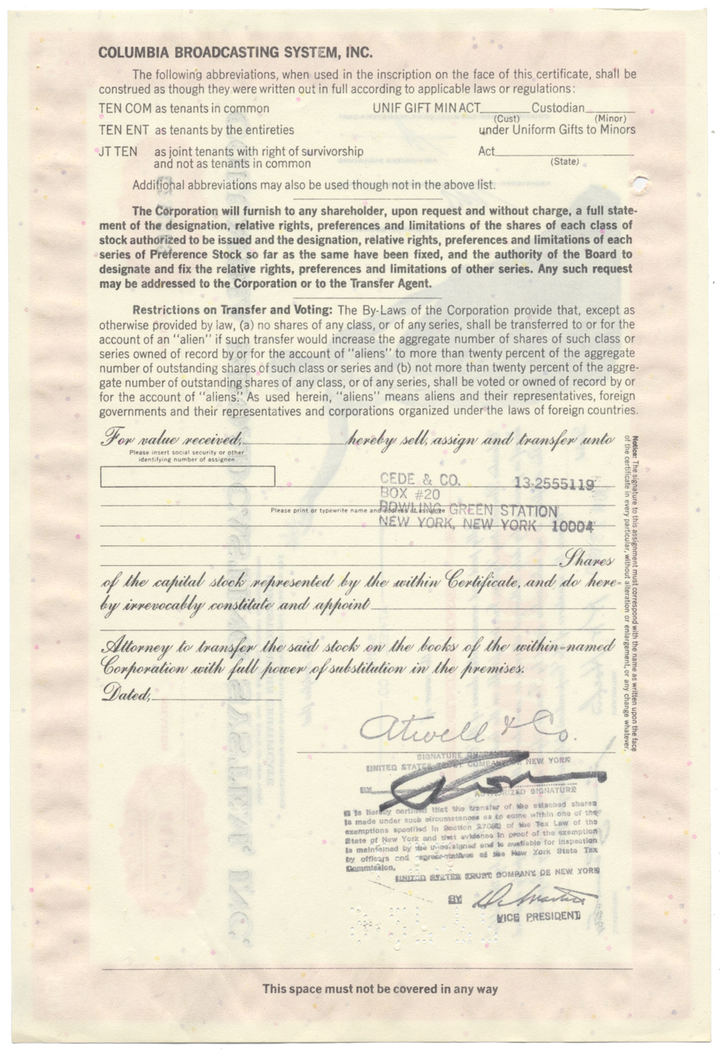 COLUMBIA BROADCASTING SYSTEM, INC.
The following abbreviations, when used in the inscription on the face of this certificate, shall be
construed as though they were written out in full according to applicable laws or regulations:
TEN COM as tenants in common
UNIF GIFT MIN ACT______Custodian______
(Cust) (Minor)
TEN ENT as tenants by the entireties
under Uniform Gifts to Minors
JT TEN as joint tenants with right of survivorship
and not as tenants in common
Act______
(State)
Additional abbreviations may also be used though not in the above list.
The Corporation will furnish to any shareholder, upon request and without charge, a full state-
ment of the designation, relative rights, preferences and limitations of the shares of each class of
stock authorized to be issued and the designation, relative rights, preferences and limitations of each
series of Preference Stock so far as the same have been fixed, and the authority of the Board to
designate and fix the relative rights, preferences and limitations of other series. Any such request
may be addressed to the Corporation or to the Transfer Agent.
Restrictions on Transfer and Voting: The By-Laws of the Corporation provide that, except as
otherwise provided by law, (a) no shares of any class, or of any series, shall be transferred to or for the
account of an "alien" if such transfer would increase the aggregate number of shares of such class or
series owned of record by or for the account of "aliens" to more than twenty percent of the aggregate
number of outstanding shares of such class or series and (b) not more than twenty percent of the aggre-
gate number of outstanding shares of any class, or of any series, shall be voted or owned of record by or
for the account of "aliens." As used herein, "aliens" means aliens and their representatives, foreign
governments and their representatives and corporations organized under the laws of foreign countries.
For value received,______hereby sell, assign and transfer unto
Please insert social security or other
identifying number of assignee
CEDE & CO. 13-2555119
BOX #20
BOWLING GREEN STATION
Please print or typewrite name and address of assignee
NEW YORK, NEW YORK 10004
Shares
of the capital stock represented by the within Certificate, and do here-
by irrevocably constitute and appoint______
Attorney to transfer the said stock on the books of the within-named
Corporation with full power of substitution in the premises.
Dated,______
Notice: The signature to this assignment must correspond with the name as written upon the face
of the certificate in every particular, without alteration or enlargement, or any change whatever.
Atwell & Co.
SIGNATURE GUARANTEED
UNITED STATES TRUST COMPANY OF NEW YORK
BY
AUTHORIZED SIGNATURE
It is hereby certified that the transfer of the attached shares
is made under such circumstances as to come within one of the
exemptions specified in Section 270 of the Tax Law of the
State of New York and that evidence in proof of the exemption
is maintained by the undersigned and is available for inspection
by officers and representatives of the New York State Tax
Commission.
UNITED STATES TRUST COMPANY OF NEW YORK
BY
VICE PRESIDENT
This space must not be covered in any way